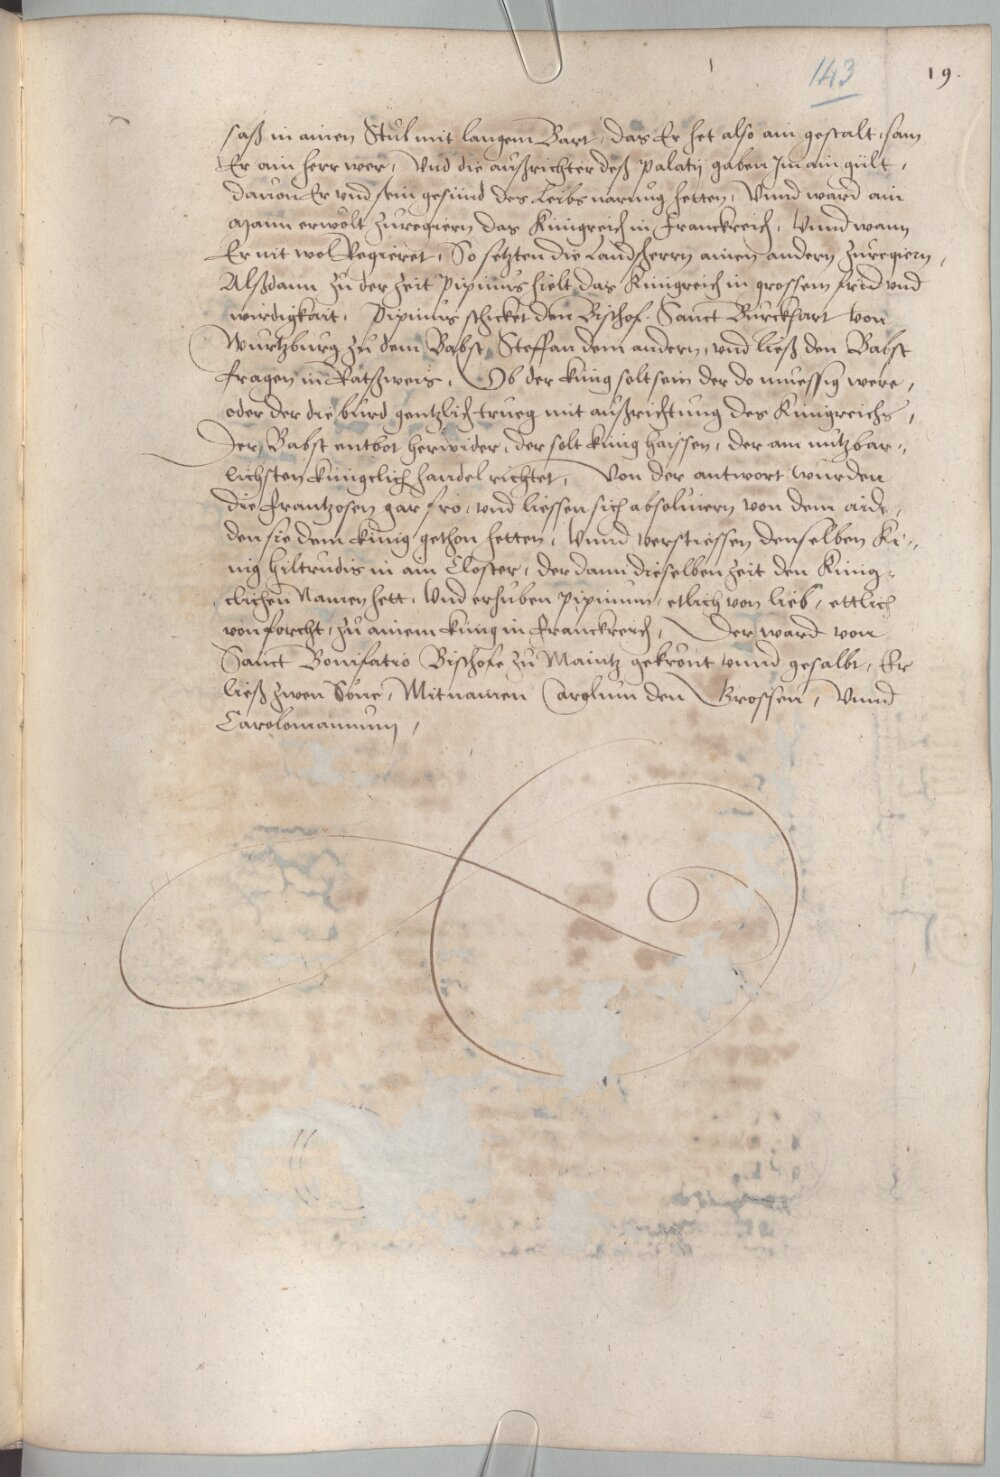 143
19.
saß in ainen Stůl mit langem Bart, das Er het also ain gestalt, sam
Er ain herr wer, Vnd die außrichter deß palatij gaben Im ain gült,
dauon Er vnd sein gesünd des Leibs narung hetten, Vnnd ward ain
Mann erwölt zuregiern das Künigreich in Franckreich, Vnnd wann
Er nit wol Regieret, So setzten die Landßherrn ainen andern zuregiern,
Alßdann zů der Zeit Pipinus hielt das Künigreich in grossem frid vnd
wirdigkait, Pipinus schicket den Bischof Sanct Burckhart von
Wurtzburg zů dem Babst Steffan dem andern, vnd ließ den Babst
fragen in Ratßweis, Ob der künig solt sein der do muessig were,
oder der die bůrd gentzlich trueg mit außrichtung des Künigreichs,
Der Babst entbot herwider, der solt künig haissen, der am nutzbar-
lichsten künigclich handel richtet, Von der antwort wurden
die Frantzosen gar fro, vnd liessen sich absoluiern von dem aide,
den sie dem künig gethon hetten, Vnnd verstiessen denselben Kü-
nig Hiltrudis in ain Closter, der dann dieselben Zeit den Künig-
clichen Namen hett, Vnd erhuben Pipinum, etlich von lieb, ettlich
von forcht, zů ainem künig in Franckreich, Der ward von
Sanct Bonifatio Bischofe zů Maintz gekrönt vnnd gesalbt, Er
ließ zwen Söne, Mitnamen Carolum den Grossen, Vnnd
Carolomannum,